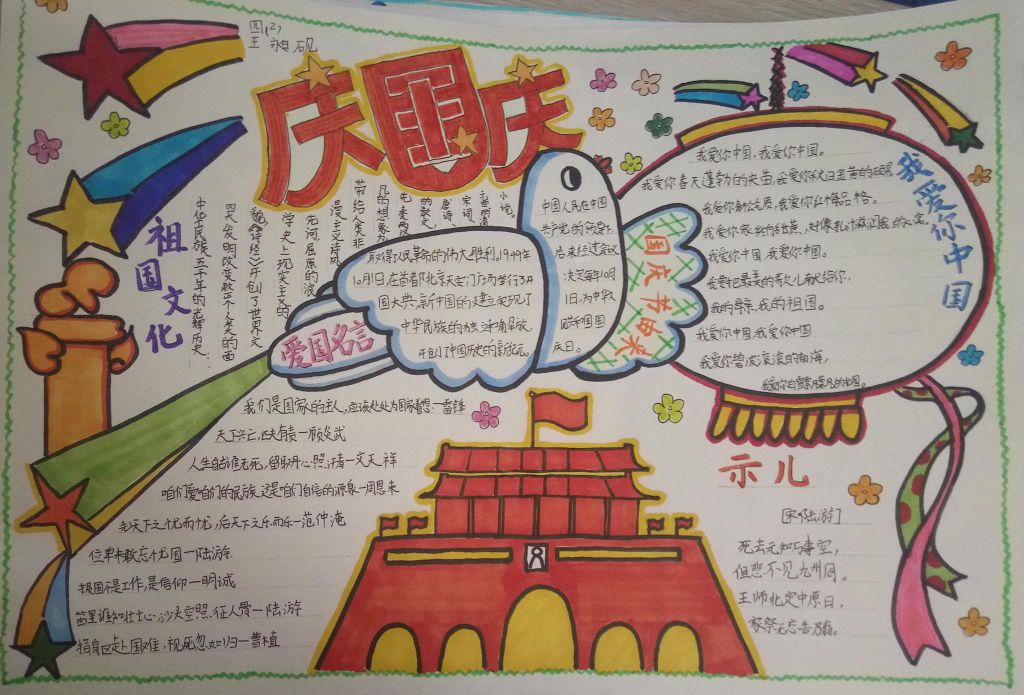 四(2)
王
庆国庆
祖国文化
中华民族五千年的光辉历史,
四大发明改变整个人类的面
貌,《诗经》开创了世界文
学史上现实主义的
先河,屈原的浪
漫主义诗风
带给人类非
凡的想象
唐诗、
宋词、
小说,
中国人民在中国
共产党的领导下,
取得了人民革命的伟大胜利。1949年
10月1日,在首都北京天安门广场举行了开
国大典,新中国的建立实现了
中华民族的独立和解放,
开创了中国历史的新纪元。
后来经过会议
决定每年10月
1日,为中华人
民共和国国
庆日。
国庆节由来
爱国名言
我们是国家的主人,应该处处为国家着想—雷锋
天下兴亡,匹夫有责—顾炎武
人生自古谁无死,留取丹心照汗青—文天祥
咱们爱咱们的民族,这是咱们自信的源泉—周恩来
先天下之忧而忧,后天下之乐而乐—范仲淹
位卑未敢忘忧国—陆游
报国不是工作,是信仰—明诚
笛里谁知壮士心,沙头空照征人骨—陆游
捐身赴国难,视死忽如归—曹植
我爱你中国
我爱你中国,我爱你中国。
我爱你春天蓬勃的秧苗,我爱你秋日金黄的硕果
我爱你青松气质,我爱你红梅品格。
我爱你家乡的甜蔗,好像乳汁滋润着我的心窝,
我爱你中国,我爱你中国。
我要把最美的歌儿献给你,
我的母亲,我的祖国。
我爱你中国,我爱你中国
我爱你碧波滚滚的南海,
我爱你白雪飘飘的北国。
示儿
[宋·陆游]
死去元知万事空,
但悲不见九州同。
王师北定中原日,
家祭无忘告乃翁。